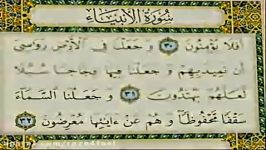 سُورَةُ الأَنبِيَاء
أَفَلَا يُؤْمِنُونَ ٣٠ وَجَعَلْنَا فِي الْأَرْضِ رَوَاسِيَ
أَن تَمِيدَ بِهِمْ وَجَعَلْنَا فِيهَا فِجَاجًا سُبُلًا
لَعَلَّهُمْ يَهْتَدُونَ ٣١ وَجَعَلْنَا السَّمَاءَ
سَقْفًا مَحْفُوظًا وَهُمْ عَنْ ءَايَاتِهَا مُعْرِضُونَ ٣٢